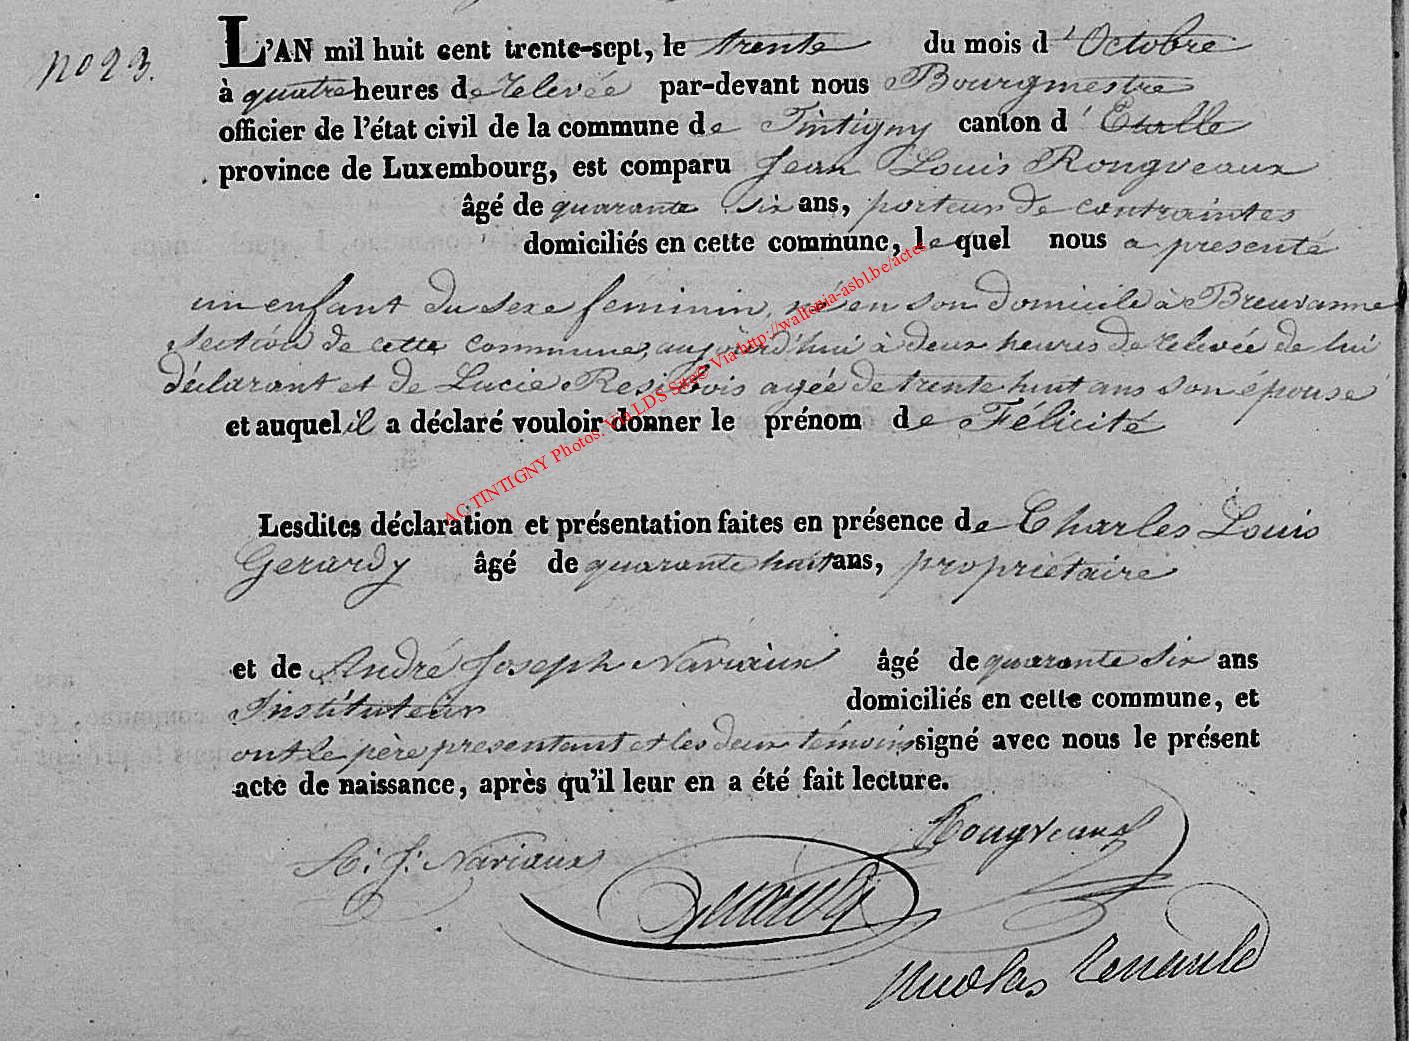 no 23.
L'AN mil huit cent trente-sept, le trente du mois d'Octobre
à quatre heures de relevée par-devant nous Bourgmestre
officier de l'état civil de la commune de Tintigny canton d'Etalle
province de Luxembourg, est comparu Jean Louis Rongveaux
âgé de quarante six ans, porteur de contraintes
domiciliés en cette commune, lequel nous a presenté
un enfant du sexe feminin, né en son domicile à Breuvanne
section de cette commune, aujourd'hui à deux heures de relevée de lui
déclarant et de Lucie Resibois agée de trente huit ans son épouse
et auquel il a déclaré vouloir donner le prénom de Félicité
AC TINTIGNY Photos: Via LDS Site© Via http://wallonia-asbl.be/actes
Lesdites déclaration et présentation faites en présence de Charles Louis
Gerardy âgé de quarante huit ans, propriétaire
et de André Joseph Naviaux âgé de quarante six ans
Instituteur domiciliés en cette commune, et
ont le père presentant et les deux témoins signé avec nous le présent
acte de naissance, après qu'il leur en a été fait lecture.
Rongveaux
A. J. Naviaux
Gerardy
Nicolas Renauld